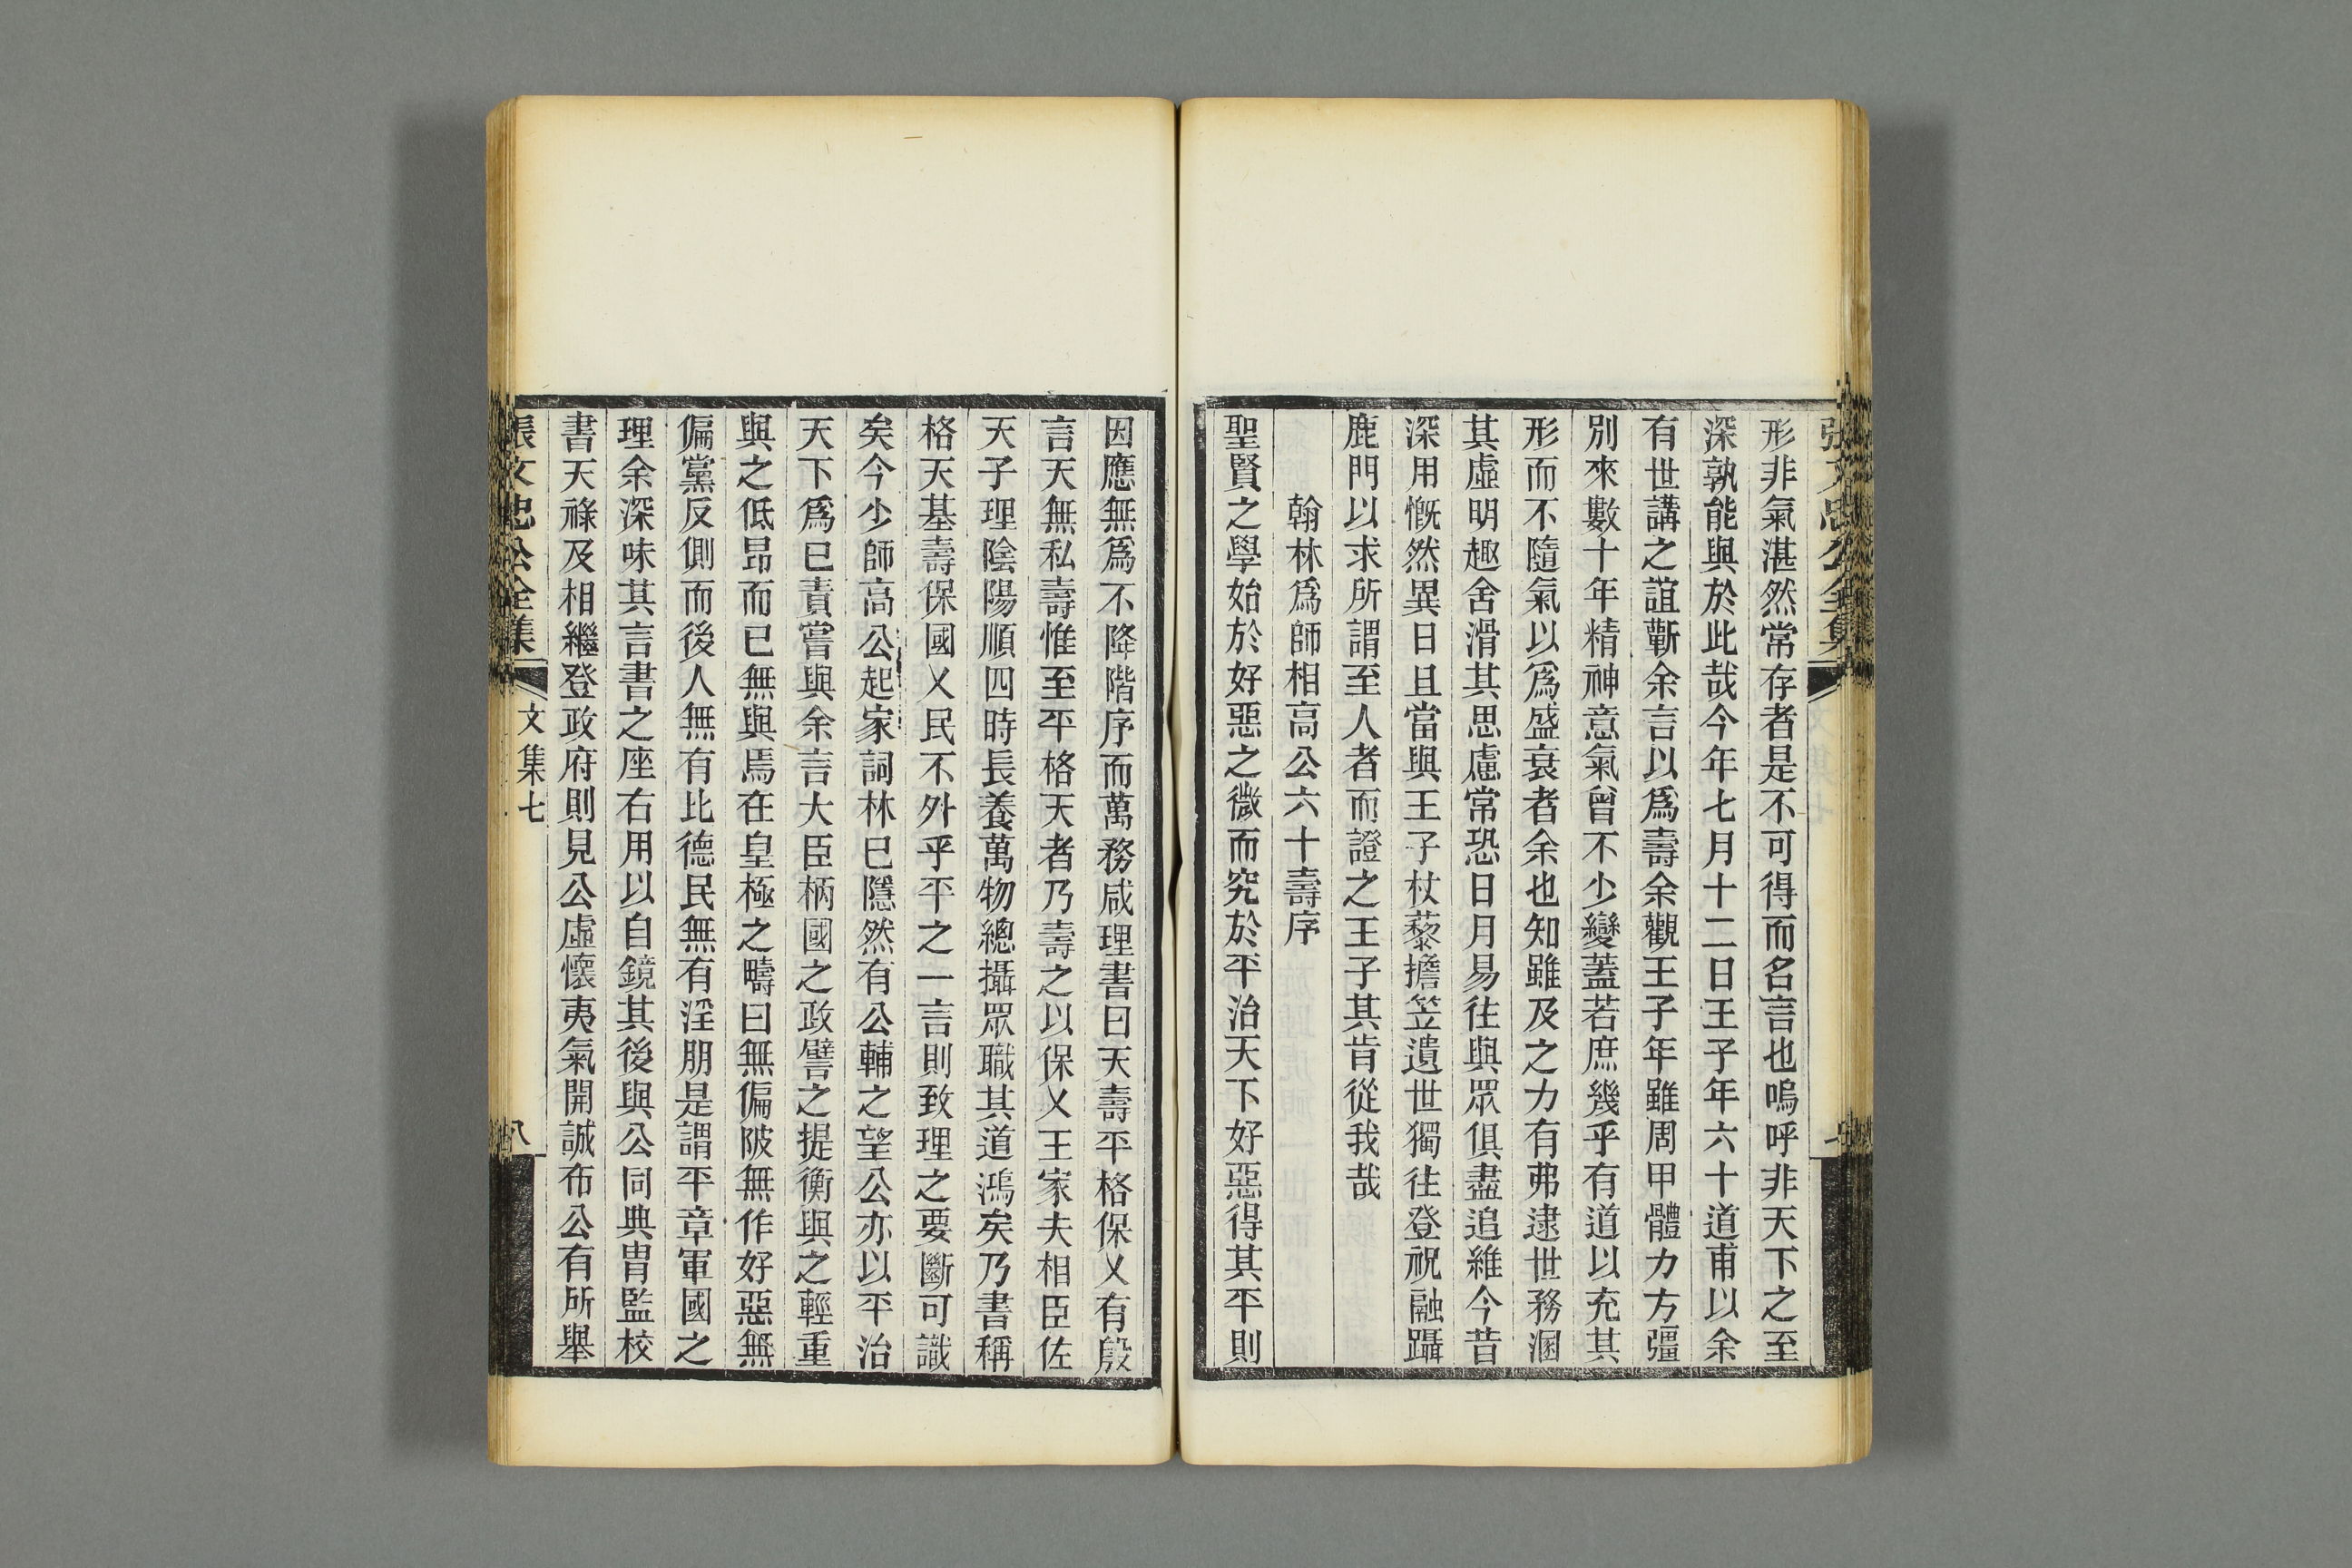 形非氣湛然常存者是不可得而名言也嗚呼非天下之至
深孰能與於此哉今年七月十二日王子年六十道甫以余
有世講之誼蘄余言以爲壽余觀王子年雖周甲體力方彊
別來數十年精神意氣曾不少變蓋若庶幾乎有道以充其
形而不隨氣以爲盛衰者余也知雖及之力有弗逮世務溷
其虛明趣舍滑其思慮常恐日月易往與眾俱盡追維今昔
深用慨然異日且當與王子杖藜擔笠遺世獨往登祝融躡
鹿門以求所謂至人者而證之王子其肯從我哉
翰林爲師相高公六十壽序
聖賢之學始於好惡之微而究於平治天下好惡得其平則
因應無爲不降階序而萬務咸理書曰天壽平格保乂有殷
言天無私壽惟至平格天者乃壽之以保乂王家夫相臣佐
天子理陰陽順四時長養萬物總攝眾職其道鴻矣乃書稱
格天基壽保國乂民不外乎平之一言則致理之要斷可識
矣今少師高公起家詞林巳隱然有公輔之望公亦以平治
天下爲巳責嘗與余言大臣柄國之政譬之提衡與之輕重
與之低昂而已無與焉在皇極之疇曰無偏陂無作好惡無
偏黨反側而後人無有比德民無有淫朋是謂平章軍國之
理余深味其言書之座右用以自鏡其後與公同典胄監校
書天祿及相繼登政府則見公虛懷夷氣開誠布公有所舉
張文忠公全集
文集七
八